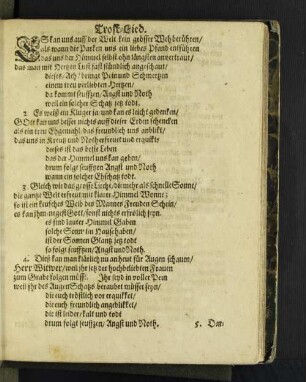 Trost-Lied.
ES kan uns auff der Welt kein grösser Weh berühren/
als wann die Parken uns ein liebes Pfand entführen
das uns der Himmel selbst ohn längsten anvertraut/
das man mit Hertzen Lust fast stündlich angeschaut/
dieses/ Ach/ bringt Pein und Schmertzen
einem treu verliebten Hertzen/
da kommt seufftzen/ Angst und Noth
weil ein solcher Schatz jetzt todt.
2. Es weiß ein Kluger ja/ und kan es leicht gedencken/
GOtt kan uns besser nichts auff dieser Erden schencken
als ein treu Ehgemahl/ das freundlich uns anblickt/
das uns in Kreutz und Noth erfreut und erquickt
dieses ist das beste Leben
das der Himmel uns kan geben/
drum folgt seufftzen/ Angst und Noth
wann ein solcher Ehschatz todt.
3. Gleich wie das grosse Liecht/ die mehr als schnelle Sonne/
die gantze Welt erfreut mit klarer Himmel Wonne:
so ist ein keusches Weib des Mannes Freuden Schein/
es kan ihm negst Gott/ sonst nichts erfrölich seyn.
es sind lauter Himmel Gaben
solche Sonn' im Hauß haben/
ist der Sonnen Glantz jetzt todt
so folgt seufftzen/ Angst und Noth.
4. Diß kan man klärlich nu an heut für Augen schauen/
Herr Witwer/ weil ihr jetzt der hochbeliebten Frauen
zum Grabe folgen müßt. Ihr seyd in voller Pein
weil ihr des Augen Schatzs beraubet müsset seyn/
die euch tröstlich vor erquicket/
die euch freundlich angeblicket/
die ist leider/ kalt und todt
drum folgt seufftzen/ Angst und Noth.
5. Dar-